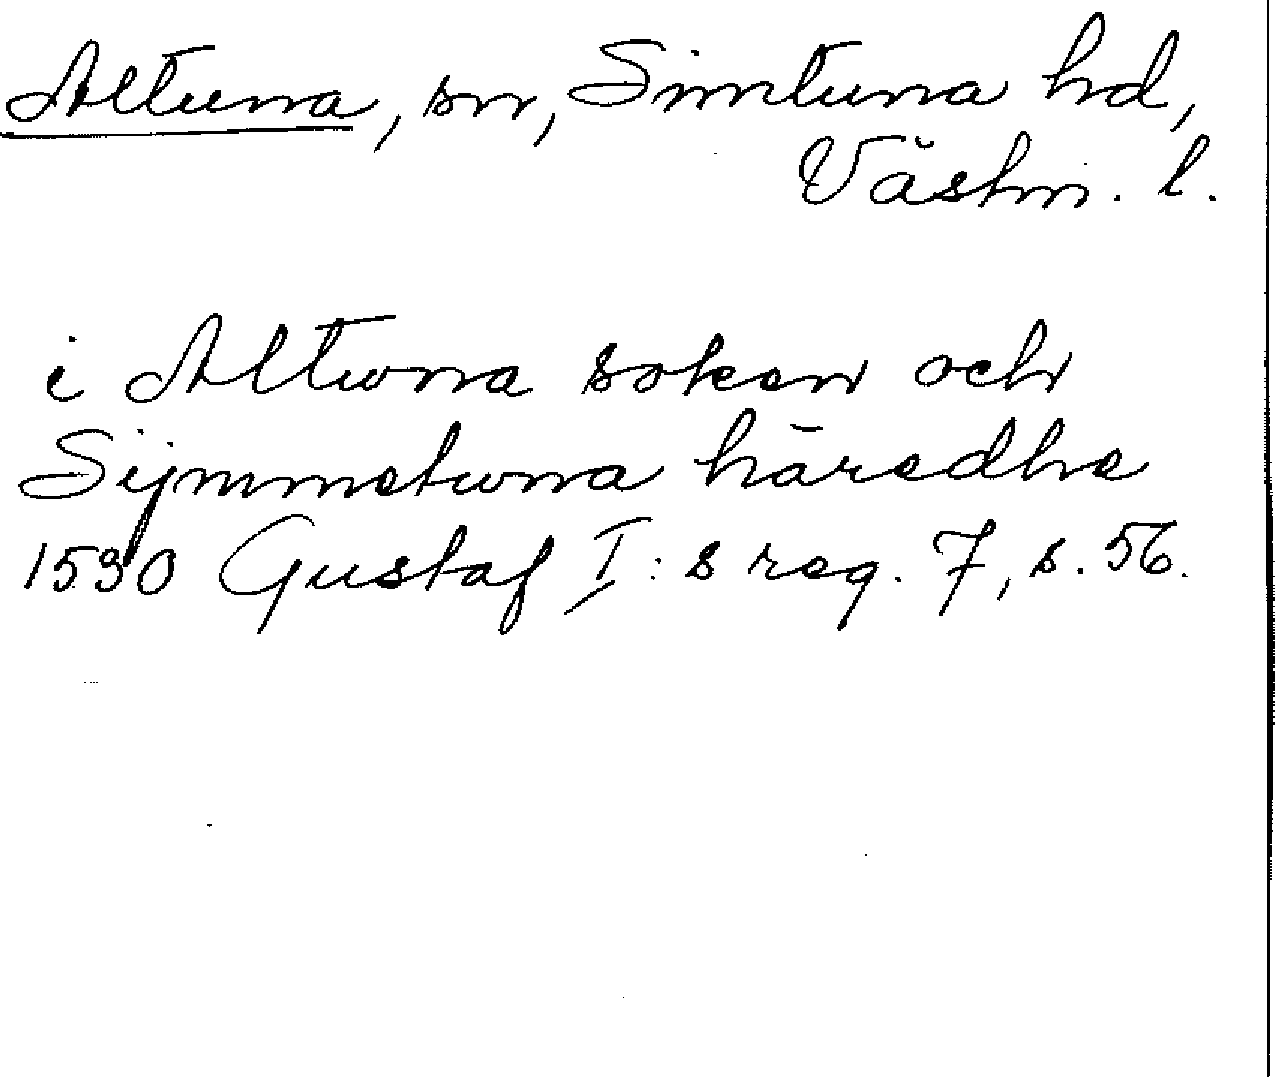 Altuna, sn, Simtuna hd,
Västm. l.
i Altwna soken och
Sijmmetwna häredhe
1530 Gustaf I:s reg. 7, s. 56.